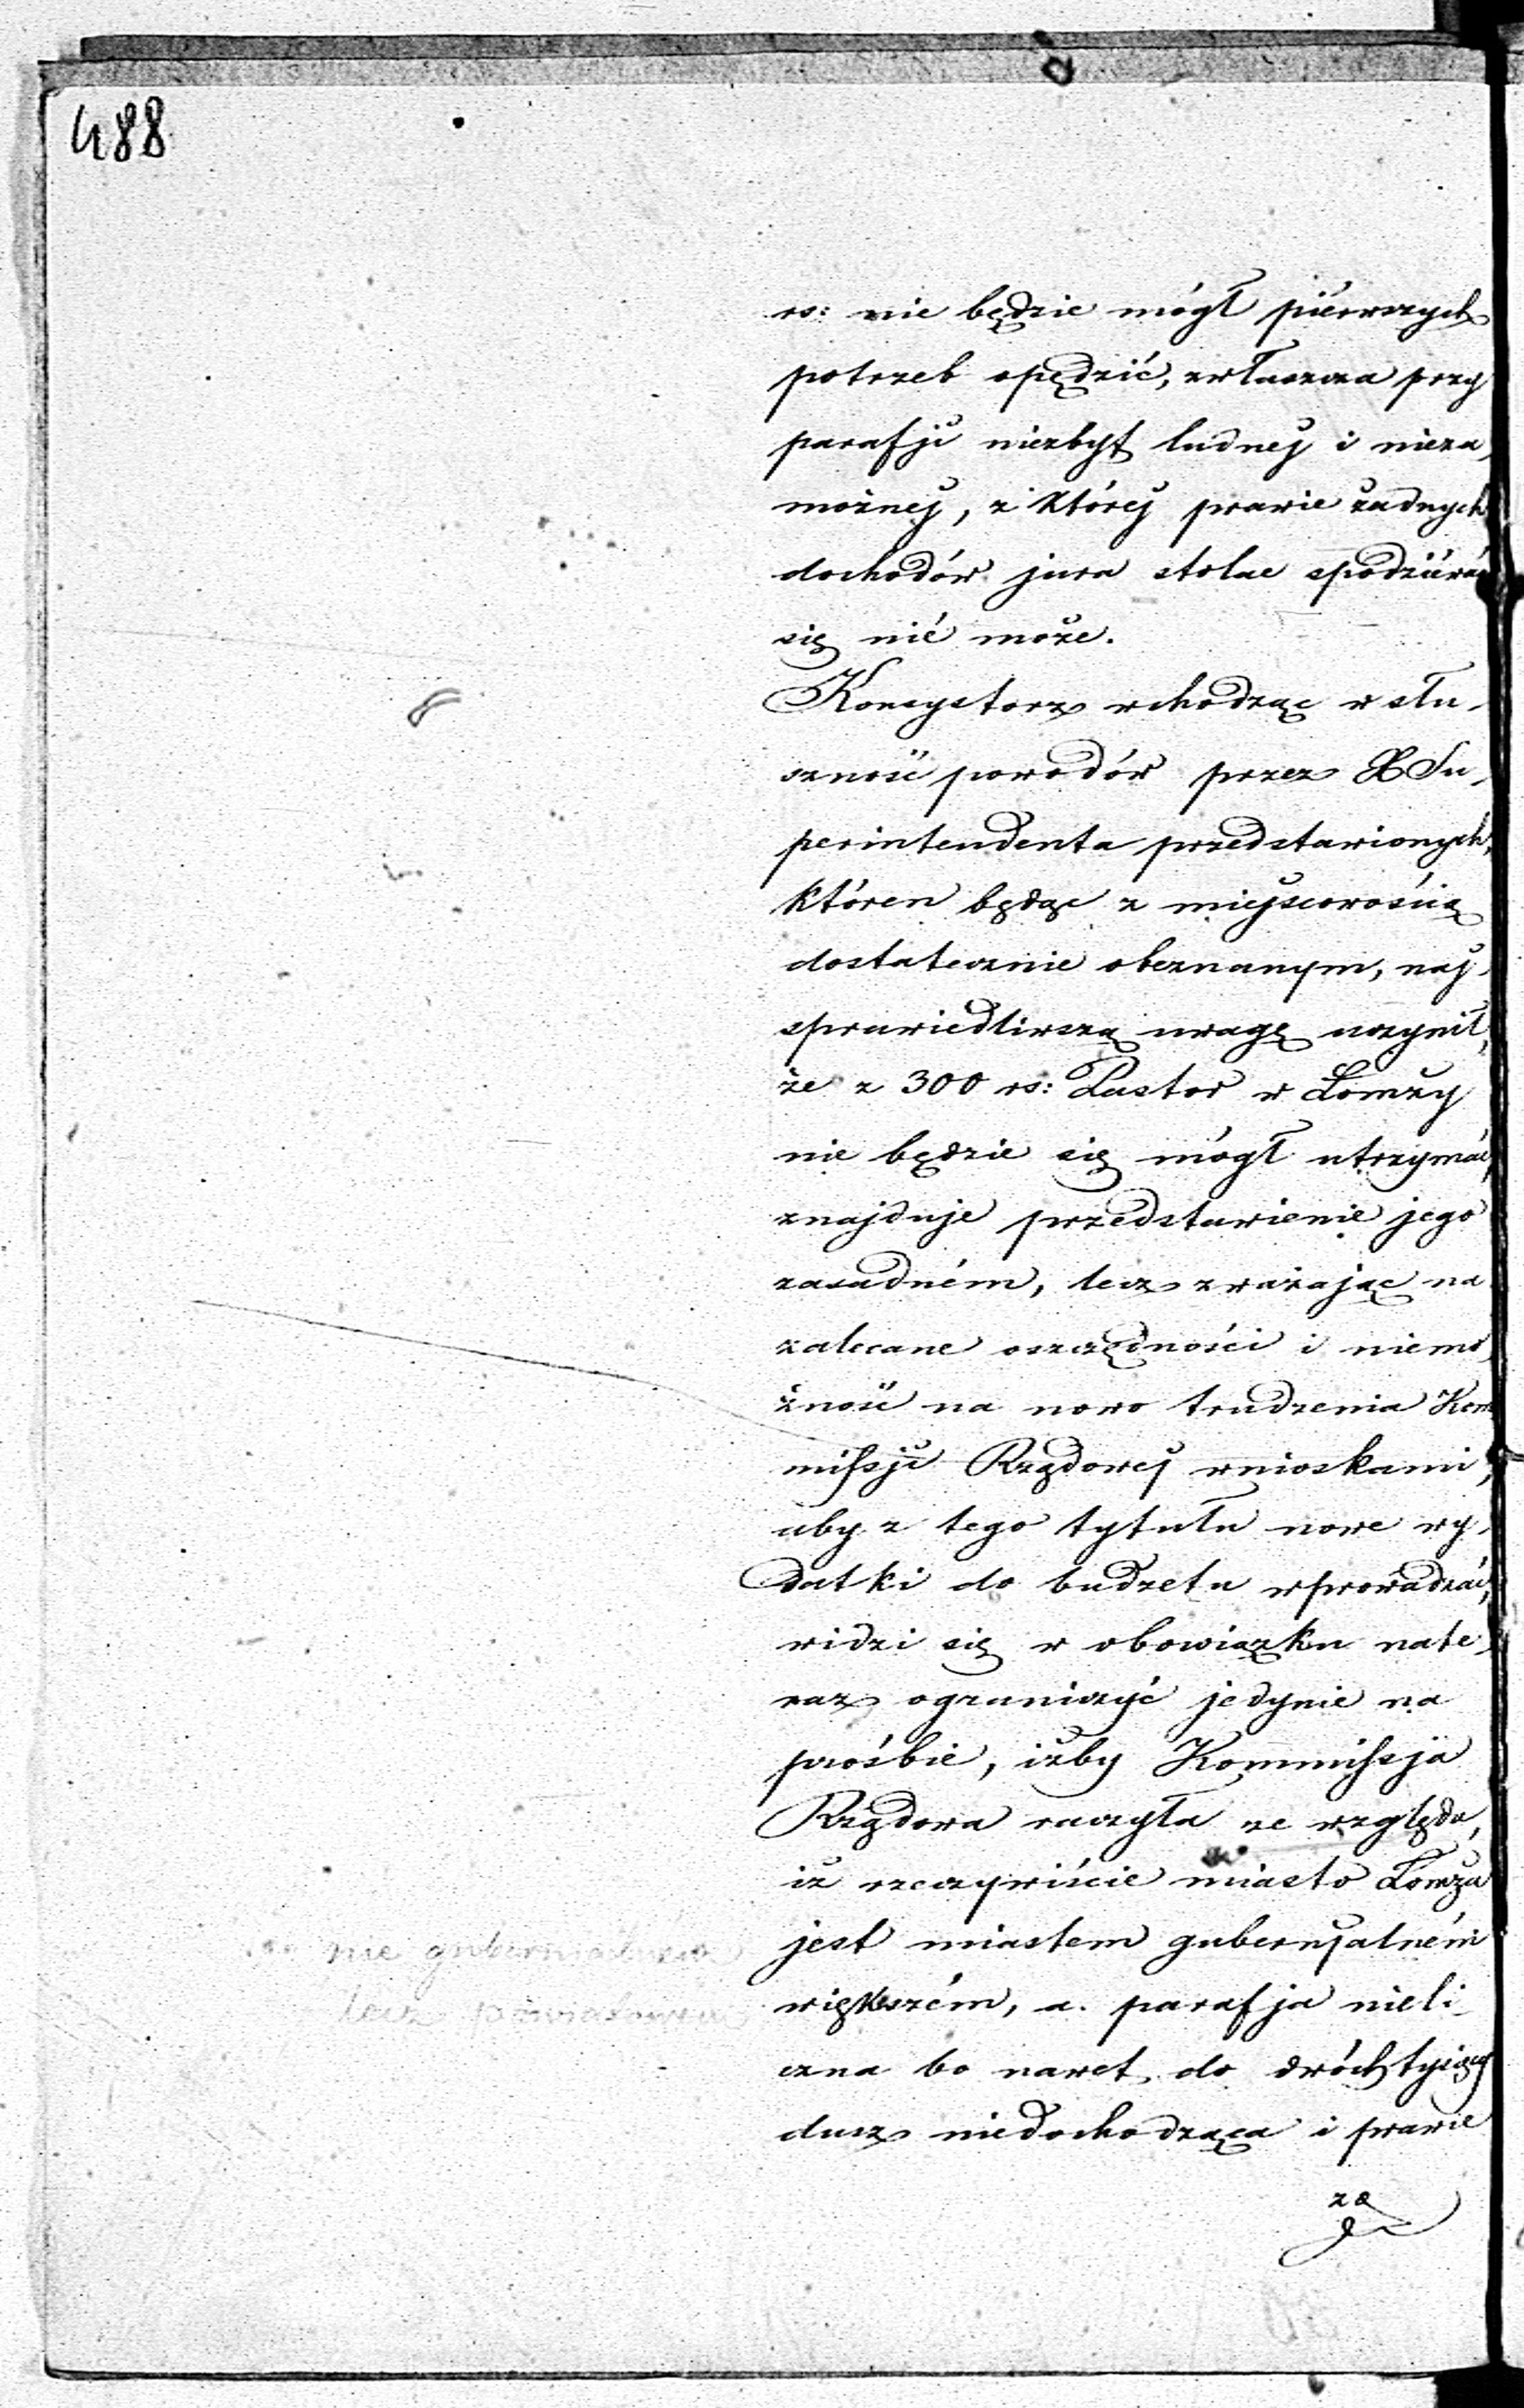 488
rs: nie będzie mógł piérwszych
potrzeb opędzić, zwłaszcza przy
parafji niezbyt ludnej i nieza-
możnej, z której prawie żadnych
dochodów jura stolae spodziéwać
się nié może.
Konsystorz wchodząc w słu-
szność powodów przez X Su-
perintendenta przedstawionych,
któren będąc z miejscowością
dostatecznie obeznanym, naj-
sprawiedliwszą uwagę uczynił,
że z 300 rs: Pastor w Łomży
nie będzie się mógł utrzymać,
znajduje przedstawienie jego
zasadném, lecz zważając na
zalecane oszczędności i niemo-
żność na nowo trudzenia Kom
missji Rządowej wnioskami,
aby z tego tytułu nowe wy-
datki do budżetu wprowadzać,
widzi się w obowiązku nate-
raz ograniczyć jedynie na
prośbie, iżby Kommissja
Rządowa raczyła ze względu,
iż rzeczywiście miasto Łomża
jest miastem gubernjalném
większém, a parafja nieli-
czna bo nawet do dwóch tysięcy
dusz niedochodząca i prawie
za
nie gubernialnem
lecz powiatowem